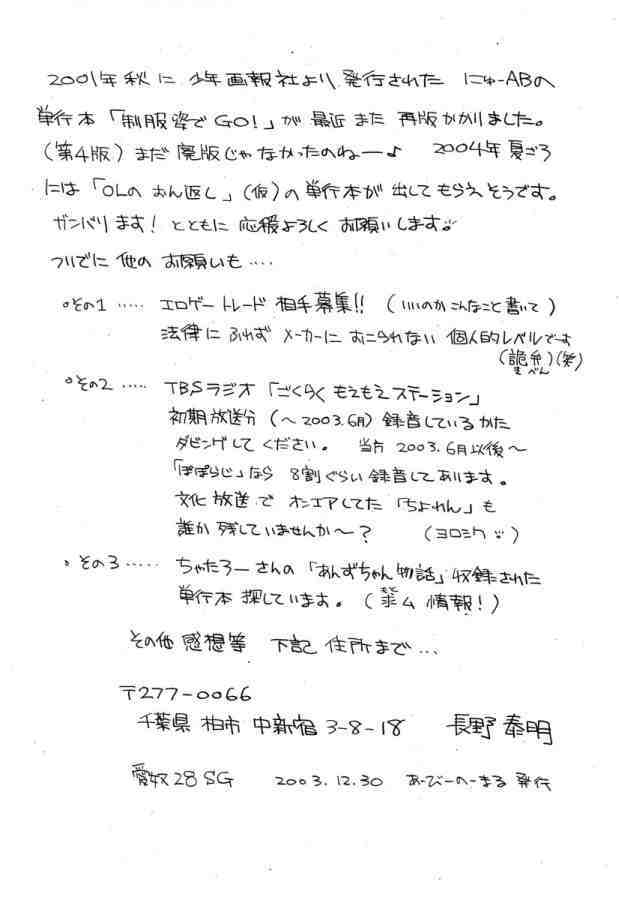 2001年 秋 に 少年画報社より 発行された にゅーABの
単行本「制服姿でGO!」が 最近 また 再版かかりました。
(第4版) まだ 廃版じゃなかったのねー♪ 2004年 夏ごろ
には「OLの おん返し」(仮)の 単行本が 出してもらえそうです。
ガンバリます! とともに 応援よろしく お願いします
ついでに 他の お願いも‥‥
○その1 ‥‥‥ エロゲー トレード 相手募集!! (いいのかこんなこと書いて)
法律に ふれず メーカーに おこられない 個人的レベルです
(詭弁)(笑)
きべん
○その2 ‥‥‥ TBSラジオ「ごくらく もえもえ ステーション」
初期放送分 (〜2003.6月) 録音しているかた
ダビングして ください。 当方 2003.6月以後〜
「ぽぽらじ」なら 8割ぐらい 録音してあります。
文化放送 で オンエアしてた「ちよれん」も
誰か 残していませんか〜? (ヨロシク)
○その3 ‥‥‥ ちゃたろーさんの「あんずちゃん物語」収録された
単行本 探しています。 (求ム 情報!)
その他 感想等 下記 住所まで…
〒277-0066
千葉県 柏市 中新宿 3-8-18 長野 泰明
愛奴28SG 2003.12.30 あーびーのーまる 発行